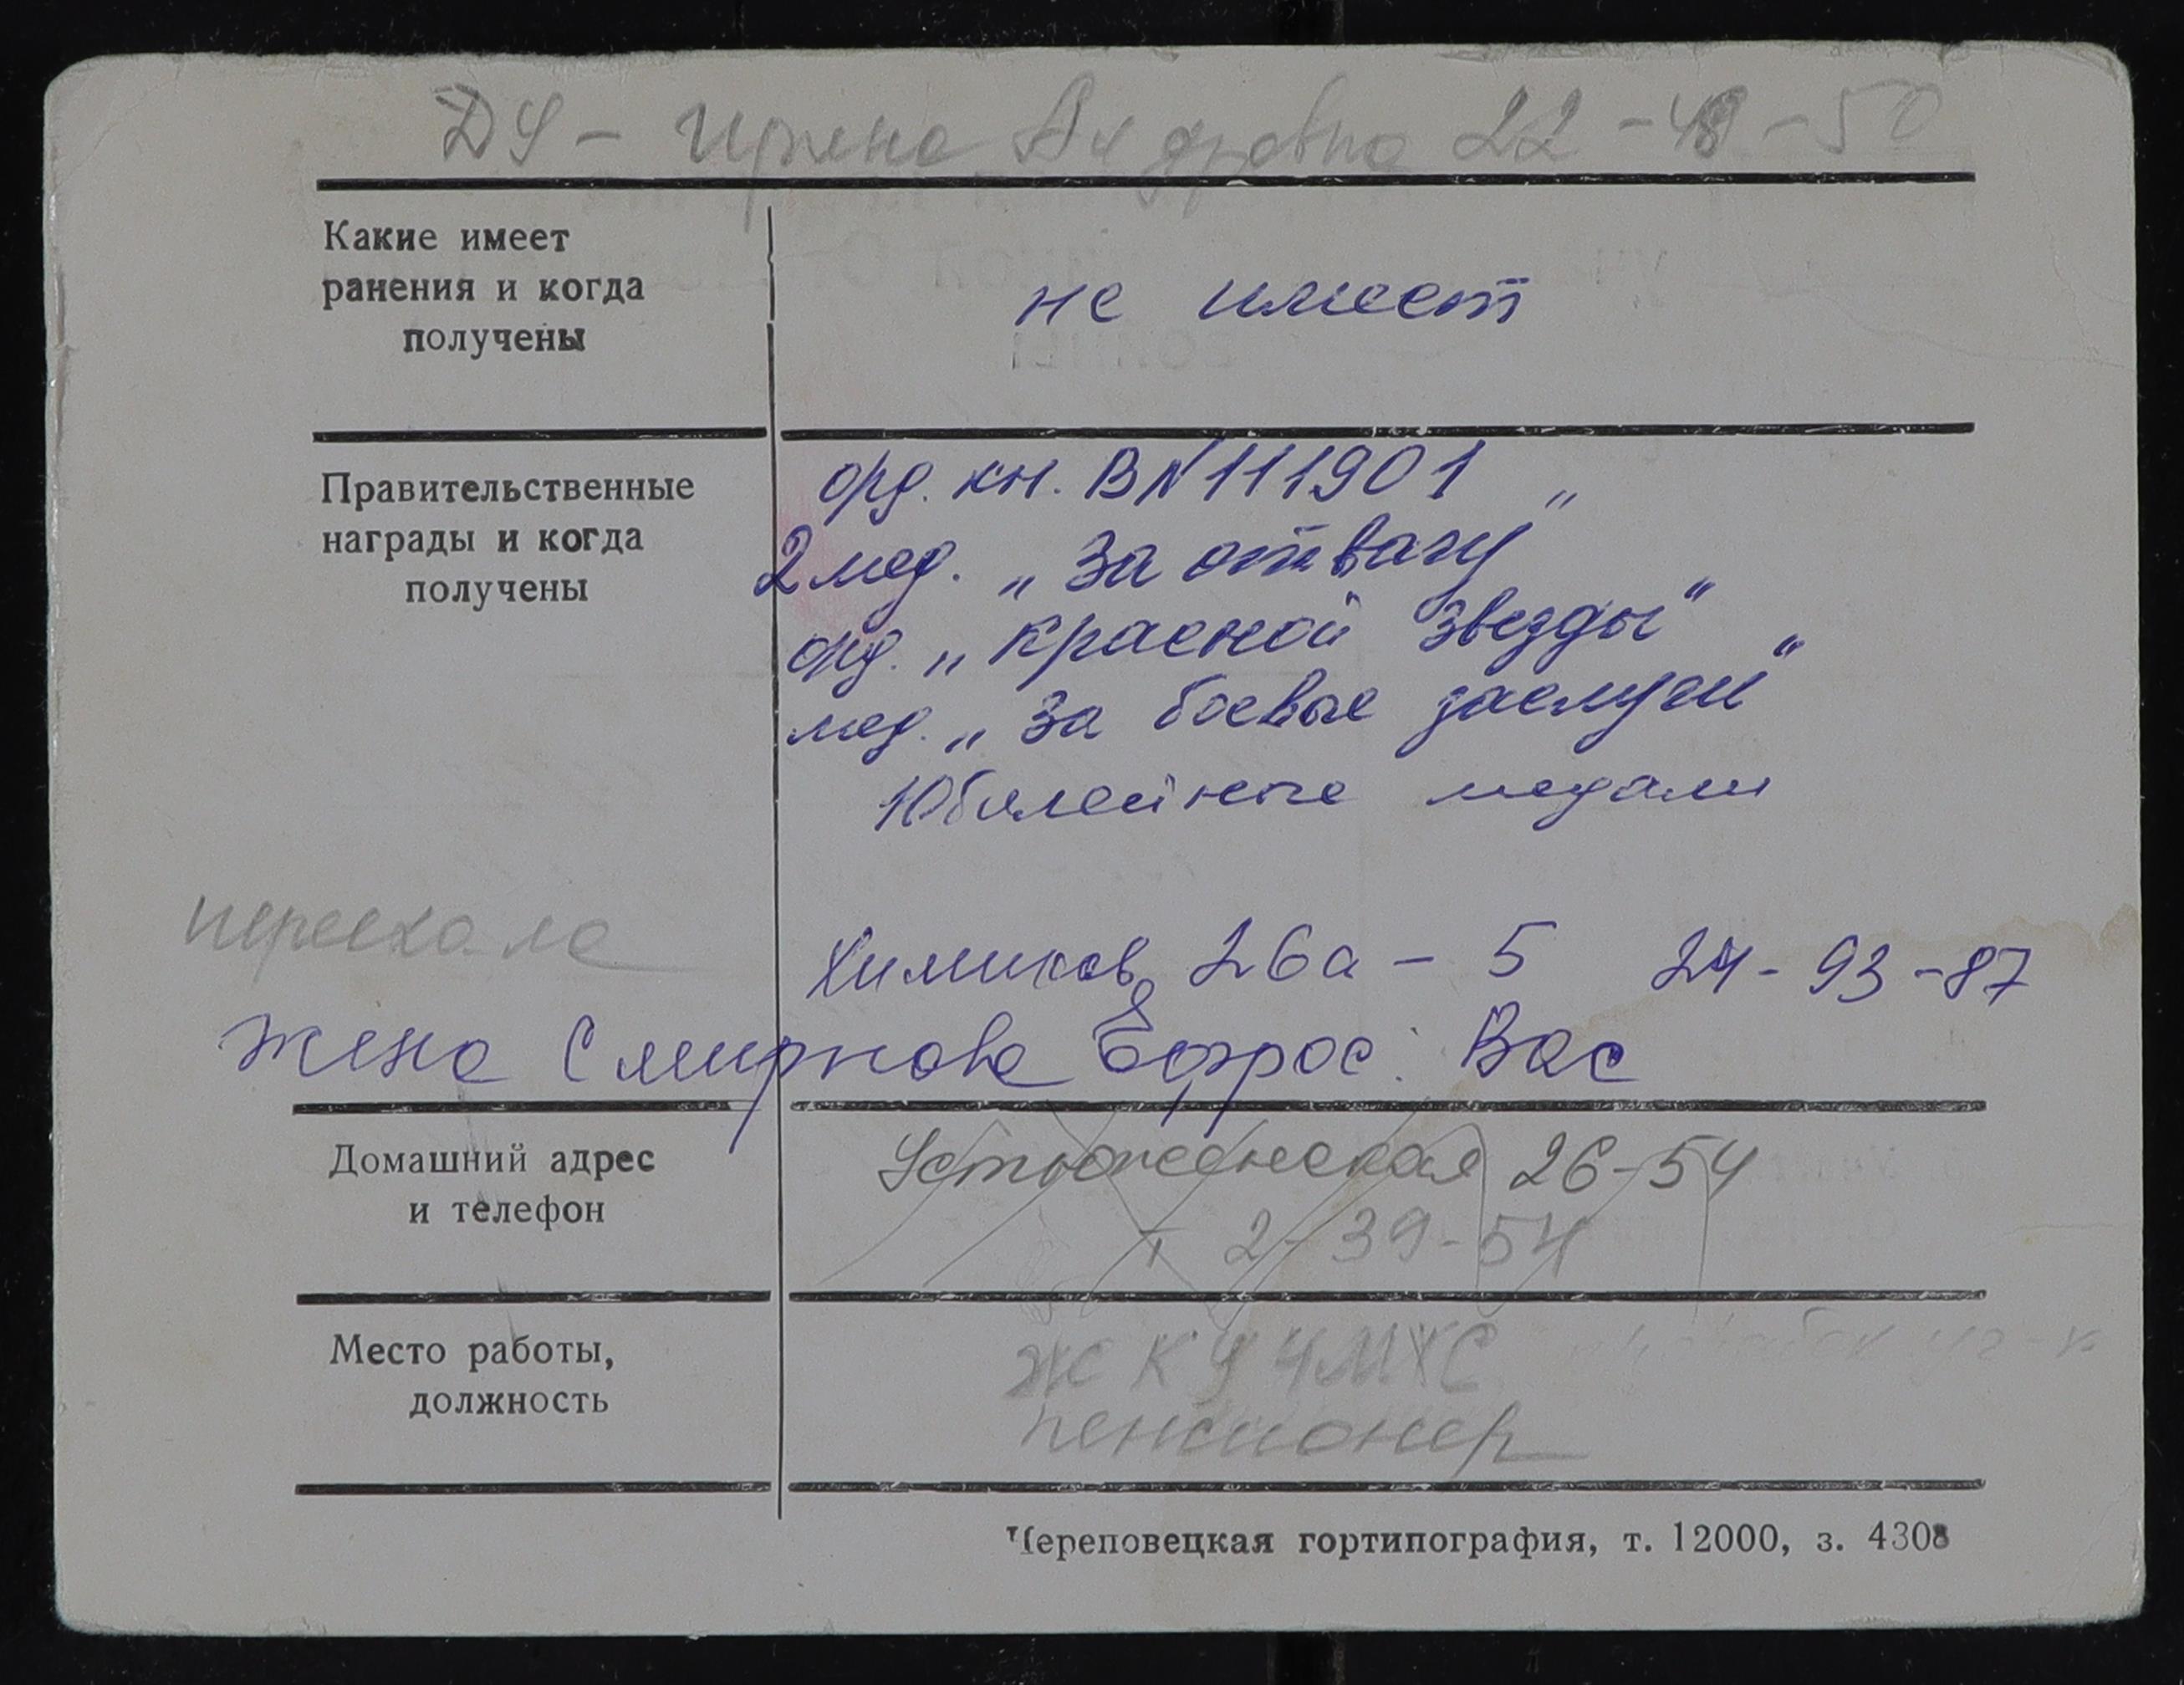 ДУ – Ирина Ан дровна 22-48-50
Какие имеет
ранения и когда
получены
не имеет
Правительственные
награды и когда
получены
орд. кн. В N 111901
2 мед. „За отвагу"
орд. „Красной Звезды"
мед. „За боевые заслуги"
Юбилейные медали
переехала
Химиков 26а – 5 24-93-87
жена Смирнова Ефрос. Вас
Домашний адрес
и телефон
Устюженская 26-54
т 2-39-54
Место работы,
должность
ЖКУ ЧМХС
пенсионер
Череповецкая гортипография, т. 12000, з. 4308